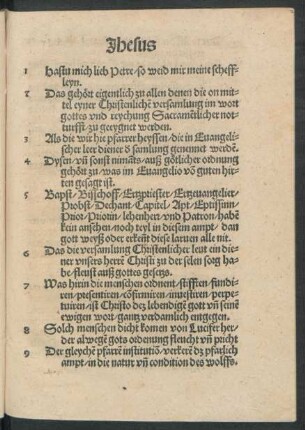 Jhesus
1 Hastu mich lieb Petre/so weid mir meine scheff-
leyn.
2 Das gehört eigentlich zu allen denen die on mit-
tel eyner Chaistenlichē versamlung im wort
gottes vnd reychung Sacramētlicher not-
turfft/zu geeygnet werden.
3 Als die wir hie pfarrer heyssen/die in Euangeli-
scher leer diener d̄ samlung genennet werdē.
4 Dysen/vn̄ sonst nimāts/auß götlicher ordnung
gehört zu/was im Euangelio vō guten hir-
ten gesagt ist.
5 Bapst/Bisschoff/Ertzpiester/Ertzeuangelier/
Probst/Dechant/Capitel/Apt/Eptissinn/
Prior/Priorin/lehenherr/vnd Patron/habē
kein ansehen/noch teyl in diesem ampt/dan
gott weyß oder erkent diese laruen alle nit.
6 Das die versamlung Christenlicher leut ein die-
ner vnsers herrē Christi zu der selen sorg ha-
be/fleust auß gottes gesetz.
7 Was hirin die menschen ordnent/stifften/fundi-
ren/presentiren/cōfirmirē/inuestiren/perpe-
tuirn/ist Christo dez lebendigē gott vn̄ seinē
ewigen wort/gantz verdamlich entgegen.
8 Solch menschen dicht komen von Lucifer her/
der alwegē gots ordnung fleucht vn̄ pricht
9 Der gleychē pfarrē institutiō/verkerē dz pfarlich
ampt/in die natur vn̄ condition des wolffs.